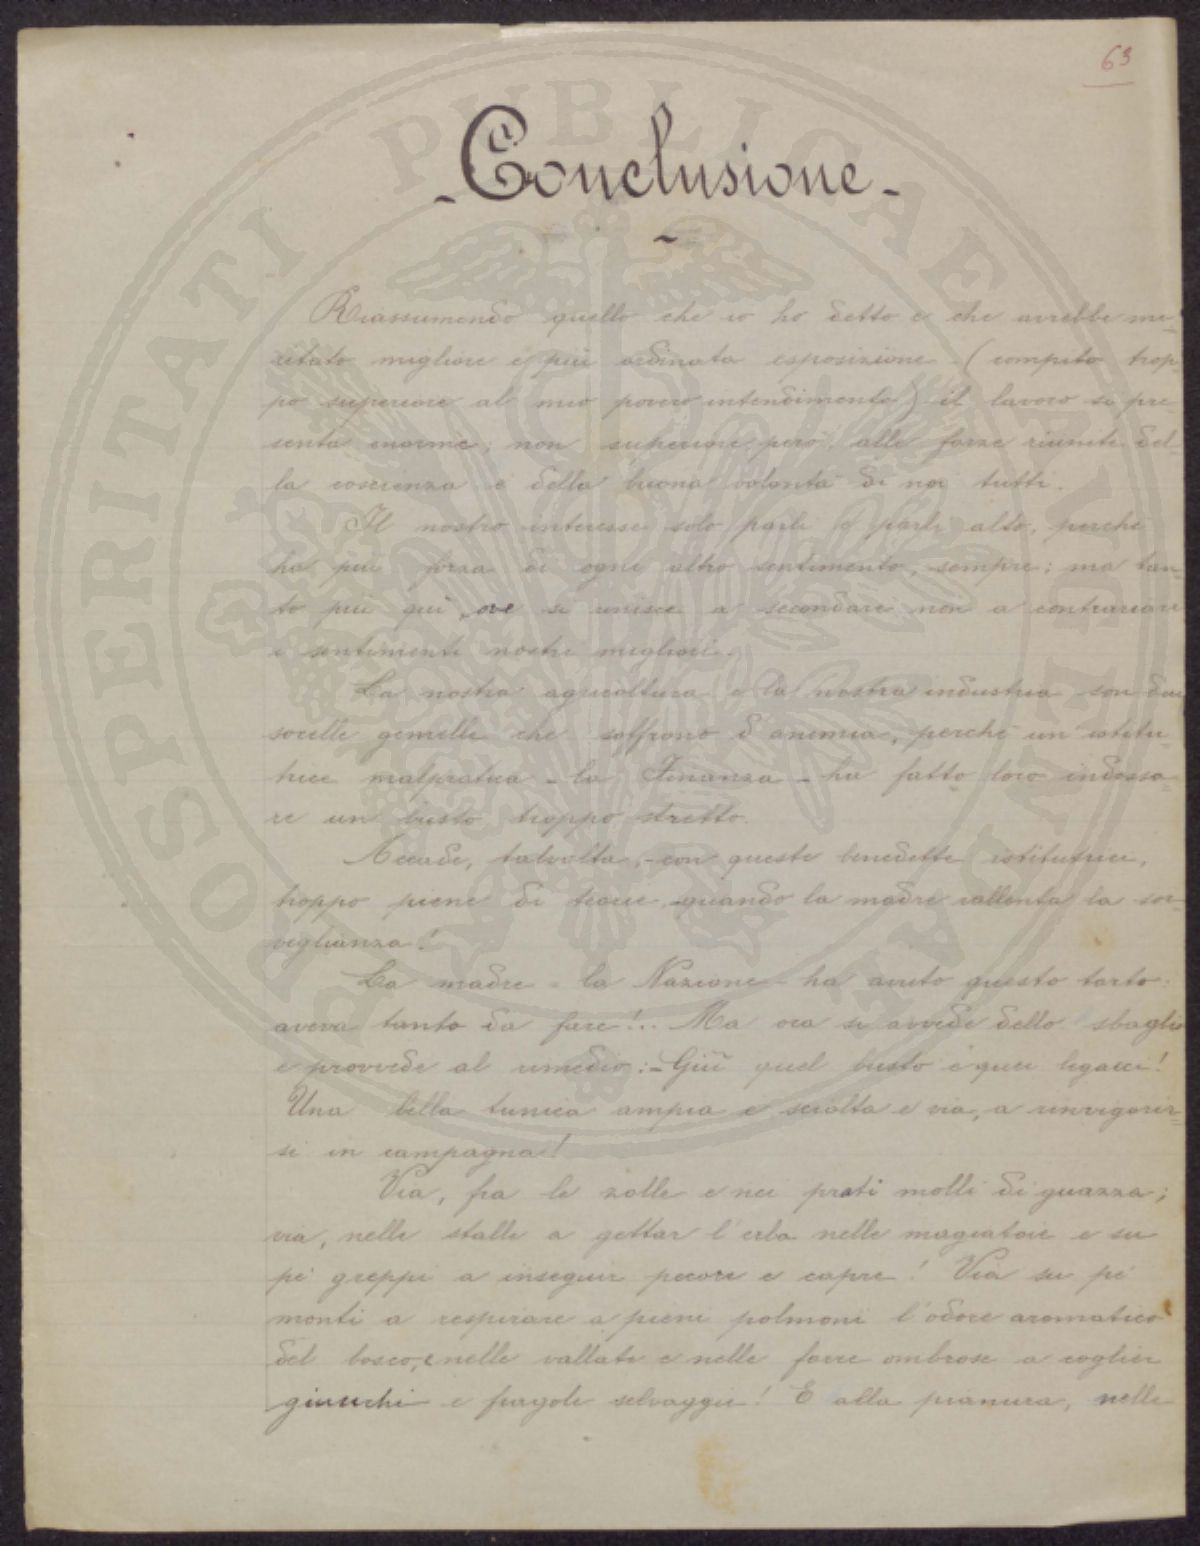 63
- Conclusione -
~
Riassumendo quello che io ho detto e che avrebbe me-
ritato migliore e più ordinata esposizione (compito trop-
po superiore al mio povero intendimento) il lavoro si pre-
senta enorme; non superiore però, alle forze riunite del-
la coscienza e della buona volontà di noi tutti.
Il nostro interesse solo parli e parli alto, perchè
ha più forza di ogni altro sentimento, sempre; ma tan-
to più quì, ove si unisce a secondare non a contrariare
i sentimenti nostri migliori.
La nostra agricoltura e la nostra industria son due
sorelle gemelle che soffrono d'anemia, perchè un'istitu-
trice malpratica - la Finanza - ha fatto loro indossa-
re un busto troppo stretto.
Accade, talvolta, - con queste benedette istitutrici,
troppo piene di teorie, quando la madre rallenta la sor-
veglianza!
La madre - la Nazione - ha avuto questo torto:
aveva tanto da fare!.. Ma ora si avvede dello sbaglio
e provvede al rimedio: - Giù quel busto e quei legacci!
Una bella tunica ampia e sciolta e via, a rinvigorir-
si in campagna!
Via, fra le zolle e nei prati molli di guazza;
via, nelle stalle a gettar l'erba nelle magiatoie e su
pè greppi a inseguir pecore e capre! Via su pè
monti a respirare a pieni polmoni l'odore aromatico
del bosco, e nelle vallate e nelle forre ombrose a coglier
giunchi e fragole selvaggie! E alla pianura, nelle
PROSPERITATI PUBLICAE AUGENDAE